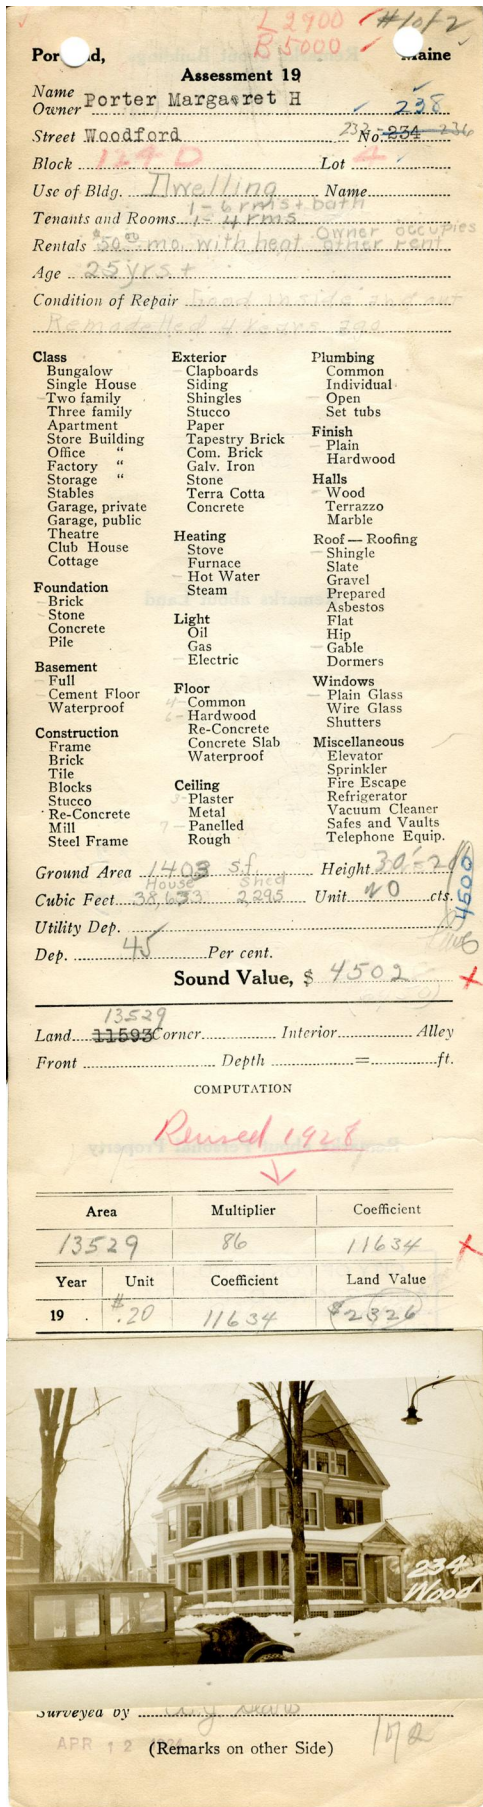 L 2900 #1 of 2
B 5000
Portland, Maine
Assessment 19
Name
Owner Porter Margaret H 238
Street Woodford 232 No. 234 - 236
Block 124 D Lot 4
Use of Bldg. Dwelling Name
1 - 6 rms + bath
Tenants and Rooms 1 - 4 rms
Owner occupies
Rentals $50.00 mo. with heat other rent
Age 25 yrs +
Condition of Repair Good inside and out
Remodelled 4 years ago
Class
Bungalow
Single House
Two family
Three family
Apartment
Store Building
Office "
Factory "
Storage "
Stables
Garage, private
Garage, public
Theatre
Club House
Cottage
Foundation
Brick
Stone
Concrete
Pile
Basement
Full
Cement Floor
Waterproof
Construction
Frame
Brick
Tile
Blocks
Stucco
Re-Concrete
Mill
Steel Frame
Exterior
Clapboards
Siding
Shingles
Stucco
Paper
Tapestry Brick
Com. Brick
Galv. Iron
Stone
Terra Cotta
Concrete
Heating
Stove
Furnace
Hot Water
Steam
Light
Oil
Gas
Electric
Floor
4 - Common
6 - Hardwood
Re-Concrete
Concrete Slab
Waterproof
Ceiling
3 - Plaster
Metal
7 - Panelled
Rough
Plumbing
Common
Individual
Open
Set tubs
Finish
Plain
Hardwood
Halls
Wood
Terrazzo
Marble
Roof — Roofing
Shingle
Slate
Gravel
Prepared
Asbestos
Flat
Hip
Gable
Dormers
Windows
Plain Glass
Wire Glass
Shutters
Miscellaneous
Elevator
Sprinkler
Fire Escape
Refrigerator
Vacuum Cleaner
Safes and Vaults
Telephone Equip.
Ground Area 1403 s.f. Height
House Shed
Cubic Feet 38,633 2,295 Unit cts.
4500
Utility Dep.
Dep. 45 Per cent.
Sound Value, $ 4502
13529
Land 11593 Corner Interior Alley
Front Depth = ft.
COMPUTATION
Revised 1928
Area Multiplier Coefficient
13529 86 11634
Year Unit Coefficient Land Value
19 . $.20 11634 $2326
234
Wood
Surveyed by
APR 12
(Remarks on other Side)